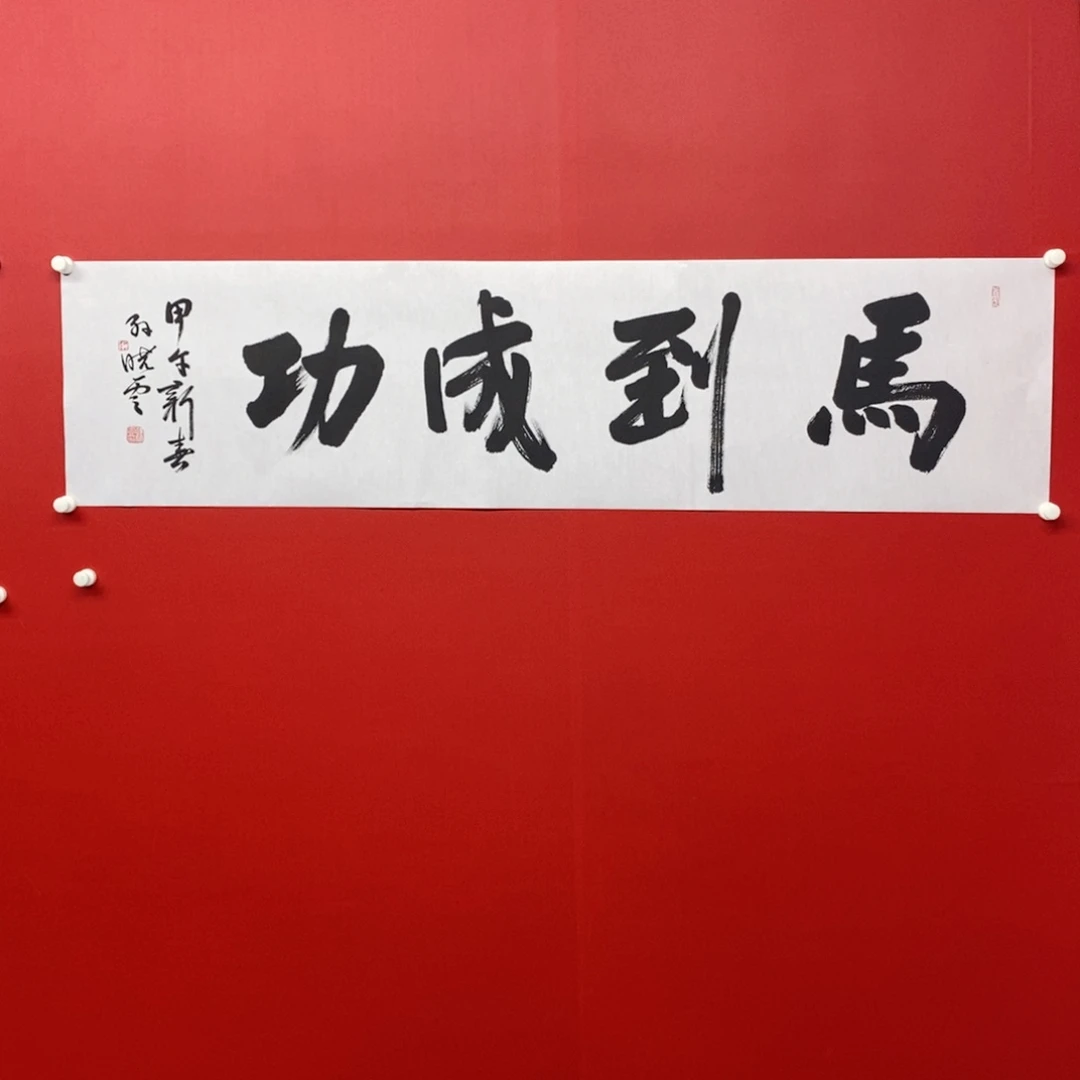 馬到成功
甲午新春
孙晓云